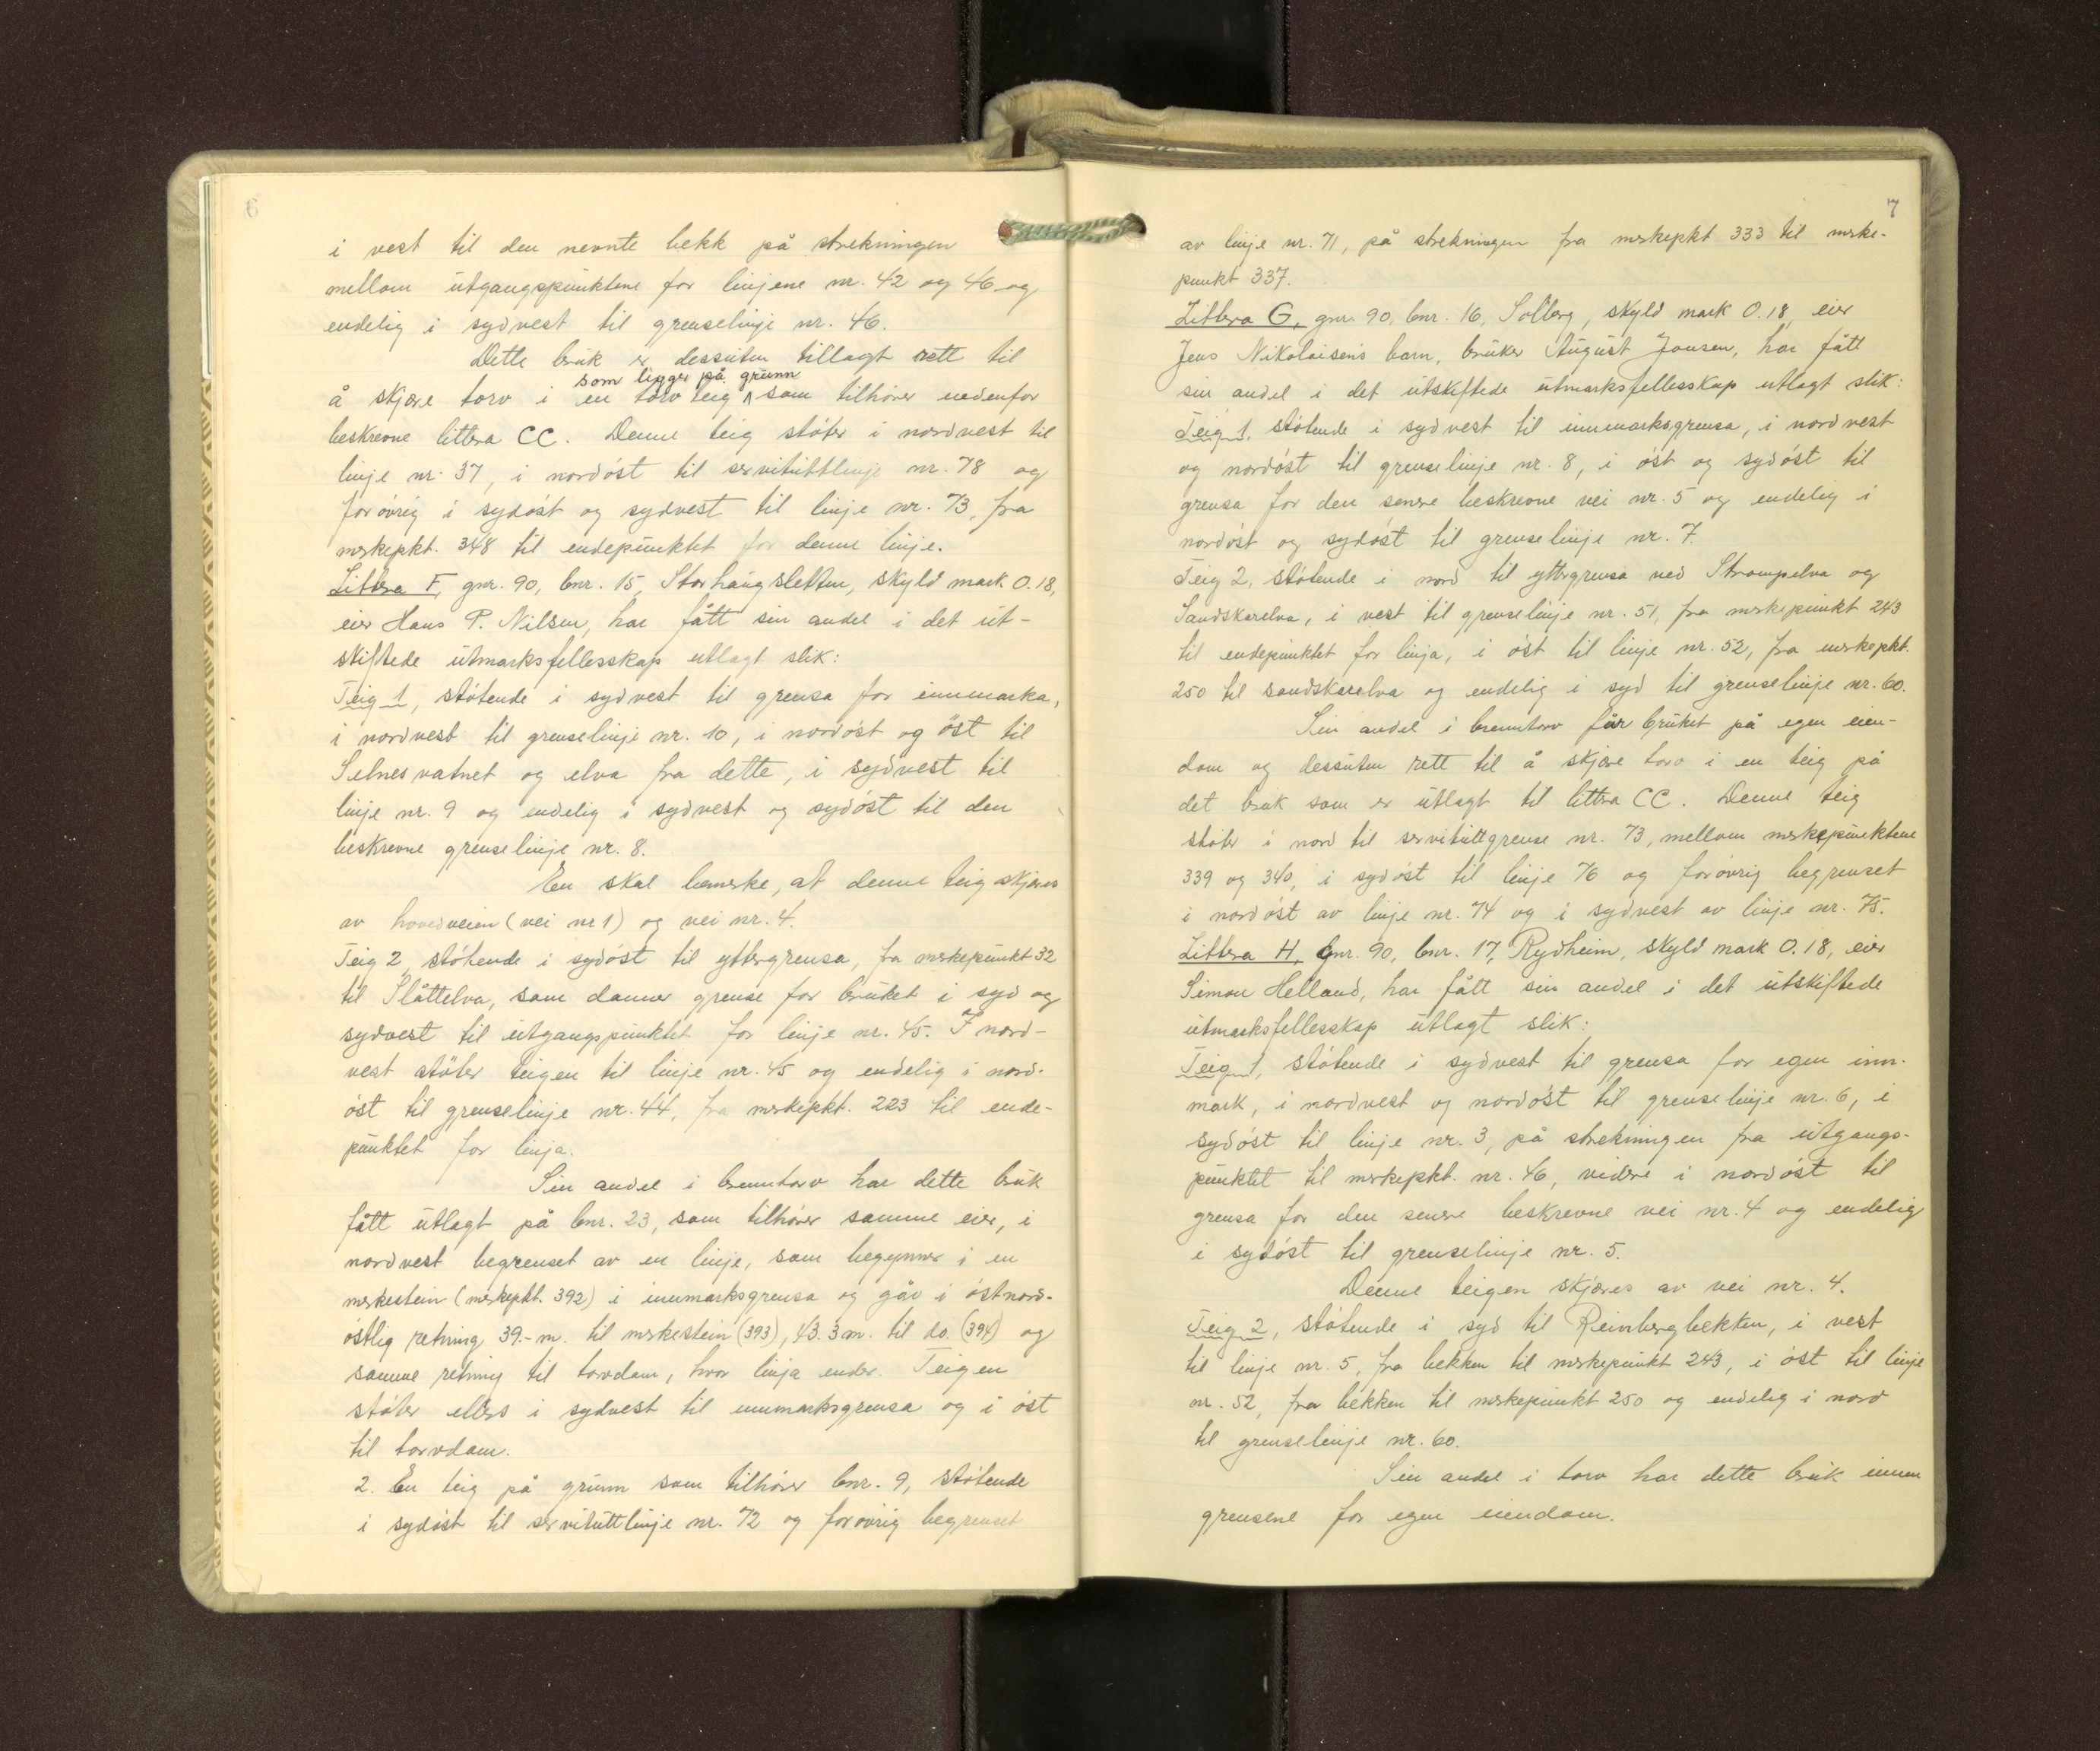 6
i vest til den nevnte bekk på strekningen
mellom utgangspunktene for linjene nr. 42 og 46 og
endelig i sydvest til grenselinje nr. 46.
Dette bruk er dessuten tillagt rett til
som ligger på grunn
å skjære torv i en torvteig som tilhører nedenfor
beskrevne littera CC. Denne teig støter i nordvest til
linje nr. 37, i nordøst til servituttlinje nr. 78 og
forøvrig i sydøst og sydvest til linje nr. 73, fra
merkepkt. 348 til endepunktet for denne linje.
Littera F, gnr. 90, bnr. 15, Storhaugsletten, skyld mark 0.18,
eier Hans P. Nilsen, har fått sin andel i det ut-
skiftede utmarksfellesskap utlagt slik:
Teig 1, støtende i sydvest til grensa for innmarka,
i nordvest til grenselinje nr. 10, i nordøst og øst til
Selnesvatnet og elva fra dette, i sydvest til
linje nr. 9 og endelig i sydvest og sydøst til den
beskrevne grenselinje nr. 8.
En skal bemerke, at denne teig skjæres
av hovedveien (vei nr 1) og vei nr. 4.
Teig 2, støtende i sydøst til yttergrensa, fra merkepunkt 32
til Slåttelva, som danner grense for bruket i syd og
sydvest til utgangspunktet for linje nr. 45. I nord-
vest støter teigen til linje nr. 45 og endelig i nord-
øst til grenselinje nr. 44, fra merkepkt. 223 til ende-
punktet for linja.
Sin andel i brenntorv har dette bruk
fått utlagt på bnr. 23, som tilhører samme eier, i
nordvest begrenset av en linje, som begynner i en
merkestein (merkepkt. 392) i innmarksgrensa og går i østnord-
østlig retning 39.- m. til merkestein (393), 43.3 m. til do. (394) og
samme retning til torvdam, hvor linja ender. Teigen
støter ellers i sydvest til innmarksgrensa og i øst
til torvdam.
2. En teig på grunn som tilhører bnr. 9, støtende
i sydøst til servituttlinje nr. 72 og forøvrig begrenset
7
av linje nr. 71, på strekningen fra merkepkt 333 til merke-
punkt 337.
Littera G, gnr. 90, bnr. 16, Solberg, skyld mark 0.18, eier
Jens Nikolaisens barn, bruker August Jonsen, har fått
sin andel i det utskiftede utmarksfellesskap utlagt slik:
Teig 1, støtende i sydvest til innmarksgrensa, i nordvest
og nordøst til grenselinje nr. 8, i øst og sydøst til
grensa for den senere beskrevne vei nr. 5 og endelig i
nordøst og sydøst til grenselinje nr. 7.
Teig 2, støtende i nord til yttergrensa ved Strompelva og
Sandskarelva, i vest til grenselinje nr. 51, fra merkepunkt 243
til endepunktet for linja, i øst til linje nr. 52, fra merkepkt.
250 til sandskarelva og endelig i syd til grenselinje nr. 60.
Sin andel i brenntorv får bruket på egen eien-
dom og dessuten rett til å skjære torv i en teig på
det bruk som er utlagt til littra CC. Denne teig
støter i nord til servituttgrense nr. 73, mellom merkepunktene
339 og 340, i sydøst til linje 76 og forøvrig begrenset
i nordøst av linje nr. 74 og i sydvest av linje nr. 75.
Littera H, gnr. 90, bnr. 17, Rydheim, skyld mark 0.18, eier
Simon Helland, har fått sin andel i det utskiftede
utmarksfellesskap utlagt slik:
Teig 1, støtende i sydvest til grensa for egen inn-
mark, i nordvest og nordøst til grenselinje nr. 6, i
sydøst til linje nr. 3, på strekningen fra utgangs-
punktet til merkepkt. nr. 46, videre i nordøst til
grensa for den senere beskrevne vei nr. 4 og endelig
i sydøst til grenselinje nr. 5.
Denne teigen skjæres av vei nr. 4.
Teig 2, støtende i syd til Reinbergbekken, i vest
til linje nr. 5, fra bekken til merkepunkt 243, i øst til linje
nr. 52, fra bekken til merkepunkt 250 og endelig i nord
til grenselinje nr. 60.
Sin andel i torv har dette bruk innen
grensene for egen eiendom.